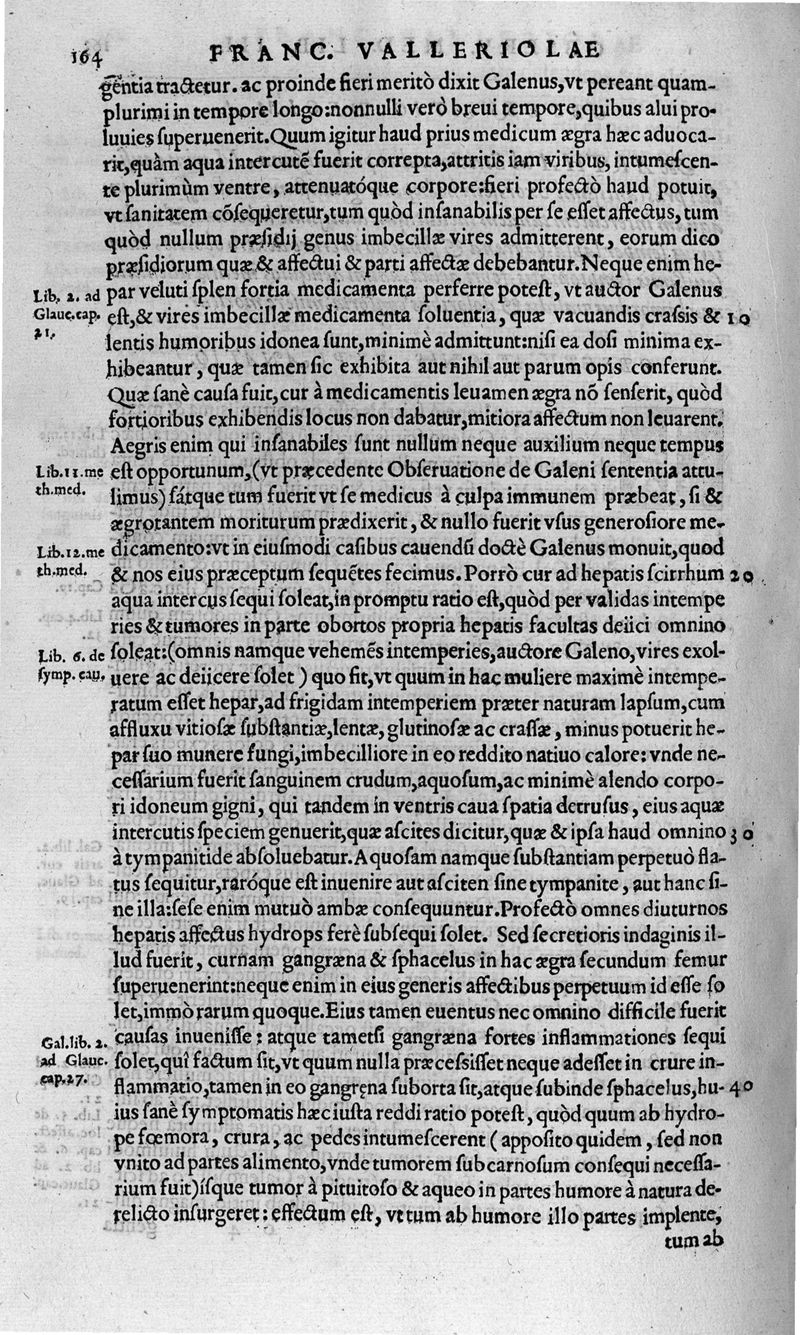 164 FRANC. VALLERIOLAE
gẽntia tractetur. ac proinde fieri meritò dixit Galenus, vt pereant quam-
plurimi in tempore longo: nonnulli verò breui tempore, quibus alui pro-
luuies ſuperuenerit. Quum igitur haud prius medicum ægra hæc aduoca-
rit, quàm aqua intercutẽ fuerit correpta, attritis iam viribus, intumeſcen-
te plurimùm ventre, attenuatóque corpore: fieri profectò haud potuit,
vt ſanitatem cõſequeretur, tum quòd inſanabilis per ſe eſſet affectus, tum
quòd nullum præſidij genus imbecillæ vires admitterent, eorum dico
præſidiorum quæ & affectui & parti affectæ debebantur. Neque enim he-
Lib. 2. ad par veluti ſplen fortia medicamenta perferre poteſt, vt auctor Galenus
Glauc. cap. eſt, & vires imbecillæ medicamenta ſoluentia, quæ vacuandis craſsis & 10
21. lentis humoribus idonea ſunt, minimè admittunt: niſi ea doſi minima ex-
hibeantur, quæ tamen ſic exhibita aut nihil aut parum opis conferunt.
Quæ ſanè cauſa fuit, cur à medicamentis leuamen ægra nõ ſenſerit, quòd
fortioribus exhibendis locus non dabatur, mitiora affectum non leuarent.
Aegris enim qui inſanabiles ſunt nullum neque auxilium neque tempus
Lib. 11. me eſt opportunum, (vt præcedente Obſeruatione de Galeni ſententia attu-
th. med. limus) ſátque tum fuerit vt ſe medicus à culpa immunem præbeat, ſi &
ægrotantem moriturum prædixerit, & nullo fuerit vſus generoſiore me-
Lib. 12. me dicamento: vt in eiuſmodi caſibus cauendũ doctè Galenus monuit, quod
th. med. & nos eius præceptum ſequẽtes fecimus. Porrò cur ad hepatis ſcirrhum 20
aqua intercus ſequi ſoleat, in promptu ratio eſt, quòd per validas intempe
ries & tumores in parte obortos propria hepatis facultas deiici omnino
Lib. 6. de ſoleat: (omnis namque vehemẽs intemperies, auctore Galeno, vires exol-
ſymp. cau. uere ac deiicere ſolet) quo fit, vt quum in hac muliere maximè intempe-
ratum eſſet hepar, ad frigidam intemperiem præter naturam lapſum, cum
affluxu vitioſæ ſubſtantiæ, lentæ, glutinoſæ ac craſſæ, minus potuerit he-
par ſuo munere fungi, imbecilliore in eo reddito natiuo calore: vnde ne-
ceſſarium fuerit ſanguinem crudum, aquoſum, ac minimè alendo corpo-
ri idoneum gigni, qui tandem in ventris caua ſpatia detruſus, eius aquæ
intercutis ſpeciem genuerit, quæ aſcites dicitur, quæ & ipſa haud omnino 30
à tympanitide abſoluebatur. Aquoſam namque ſubſtantiam perpetuò fla-
tus ſequitur, raróque eſt inuenire aut aſciten ſine tympanite, aut hanc ſi-
ne illa: ſeſe enim mutuò ambæ conſequuntur. Profectò omnes diuturnos
hepatis affectus hydrops ferè ſubſequi ſolet. Sed ſecretioris indaginis il-
lud fuerit, curnam gangræna & ſphacelus in hac ægra ſecundum femur
ſuperuenerint: neque enim in eius generis affectibus perpetuum id eſſe ſo
let, immò rarum quoque. Eius tamen euentus nec omnino difficile fuerit
Gal. lib. 2. cauſas inueniſſe: atque tametſi gangræna fortes inflammationes ſequi
ad Glauc. ſolet, quî factum ſit, vt quum nulla præceſsiſſet neque adeſſet in crure in-
cap. 27. flammatio, tamen in eo gangręna ſuborta ſit, atque ſubinde ſphacelus, hu- 40
ius ſanè ſymptomatis hæc iuſta reddi ratio poteſt, quòd quum ab hydro-
pe fœmora, crura, ac pedes intumeſcerent (appoſito quidem, ſed non
vnito ad partes alimento, vnde tumorem ſubcarnoſum conſequi neceſſa-
rium fuit) íſque tumor à pituitoſo & aqueo in partes humore à natura de-
relicto inſurgeret: effectum eſt, vt tum ab humore illo partes implente,
tum ab